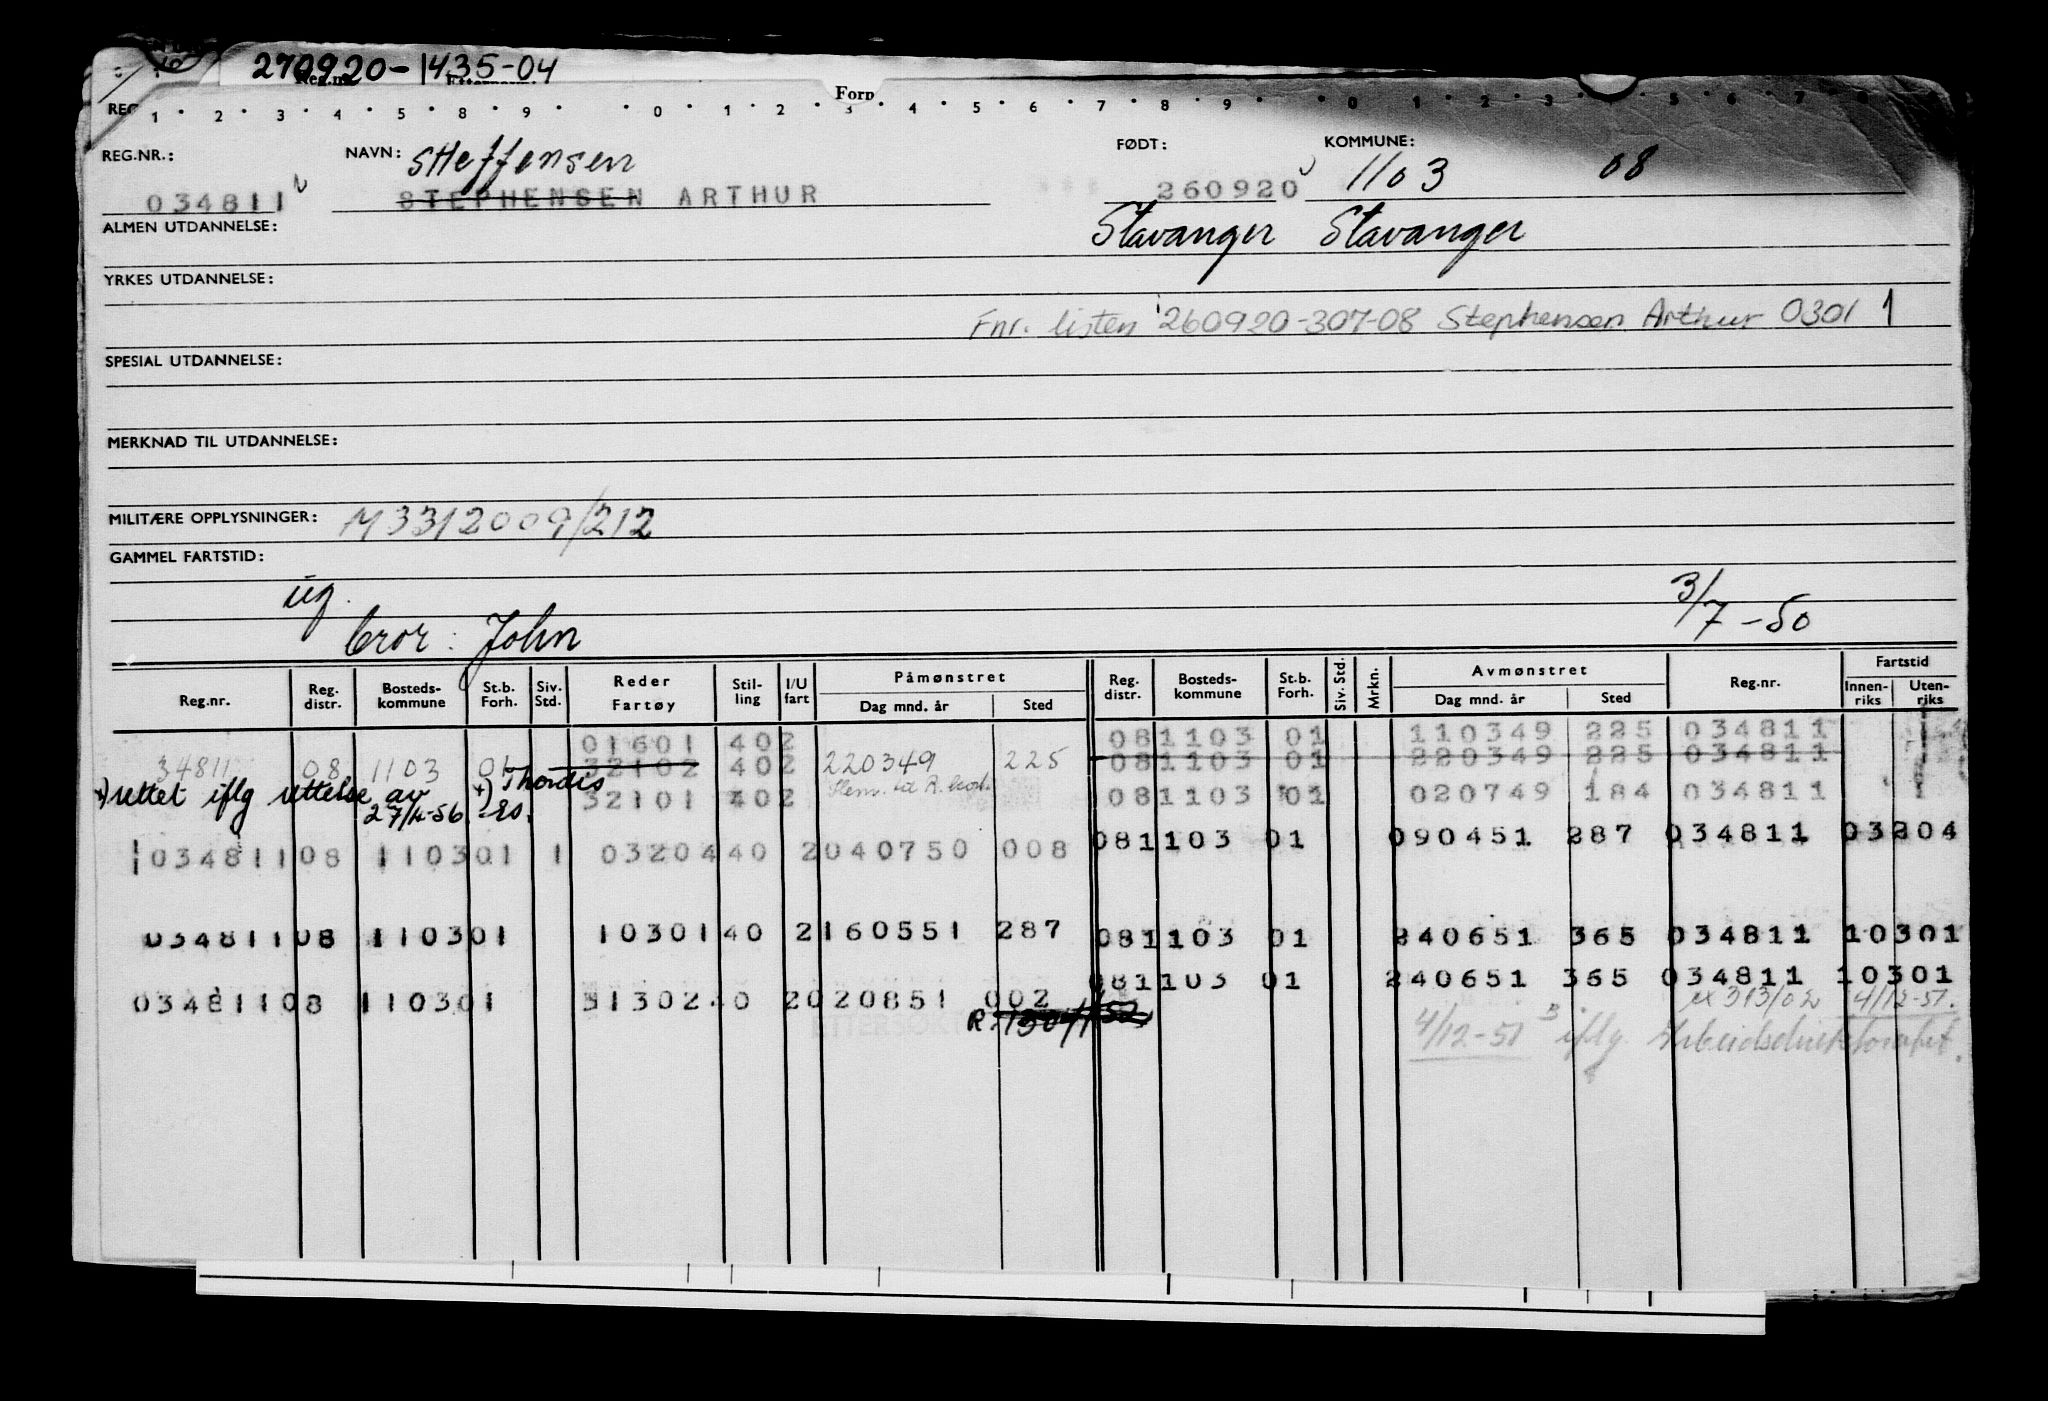 270920-1435-04
Reg.nr. Etternavn: Forn
REG 1 2 3 4 5 8 9 0 1 2 3 4 5 6 7 8 9 0 1 2 3 4 5 6 7 8
REG.NR.: NAVN: FØDT: KOMMUNE:
Steffensen
034811 STEPHENSEN ARTHUR 260920 1103 08
ALMEN UTDANNELSE: Stavanger Stavanger
YRKES UTDANNELSE:
Fnr. listen 260920-307-08 Stephensen Arthur 0301 1
SPESIAL UTDANNELSE:
MERKNAD TIL UTDANNELSE:
MILITÆRE OPPLYSNINGER: M3312009/212
GAMMEL FARTSTID:
ug. 3/7-50
bror: John
Reg.nr. Reg. distr. Bosteds-kommune St.b. Forh. Siv. Std. Reder Fartøy Stil-ling I/U fart Påmønstret Dag mnd. år Sted Reg. distr. Bosteds-kommune St.b. Forh. Siv. Std. Mrkn. Avmønstret Dag mnd. år Sted Reg.nr. Fartstid Innen-riks Uten-riks
01601 402 081103 01 110349 225 034811
34811 08 1103 01 32102 402 220349 225 081103 01 220349 225 034811
+) rettet iflg rettelse av 27/4-56 +) Thordis 32101 402 081103 01 020749 184 034811
03481108 110301 1 03204 40 2 040750 008 081103 01 090451 287 034811 03204
03481108 110301 10301 40 2 160551 287 081103 01 240651 365 034811 10301
081103 01 240651 365 034811 10301
03481108 110301 31302 40 2 020851 002 313/02 4/12-51.
4/12-51 iflg. Arbeidsdirektoratet.